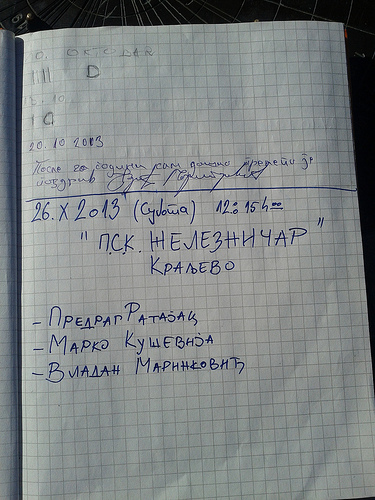 10. ОКТОБАР
D
C
20.10 2013
После 20 година сам дошао
поздрав
26. X 2013 (Субота) 12:15h
"П.С.К. ЖЕЛЕЗНИЧАР"
КРАЉЕВО
- ПРЕДРАГ РАТАЈАЦ
- МАРКО КУШЕВИЈА
- ВЛАДАН МАРИНКОВИЋ